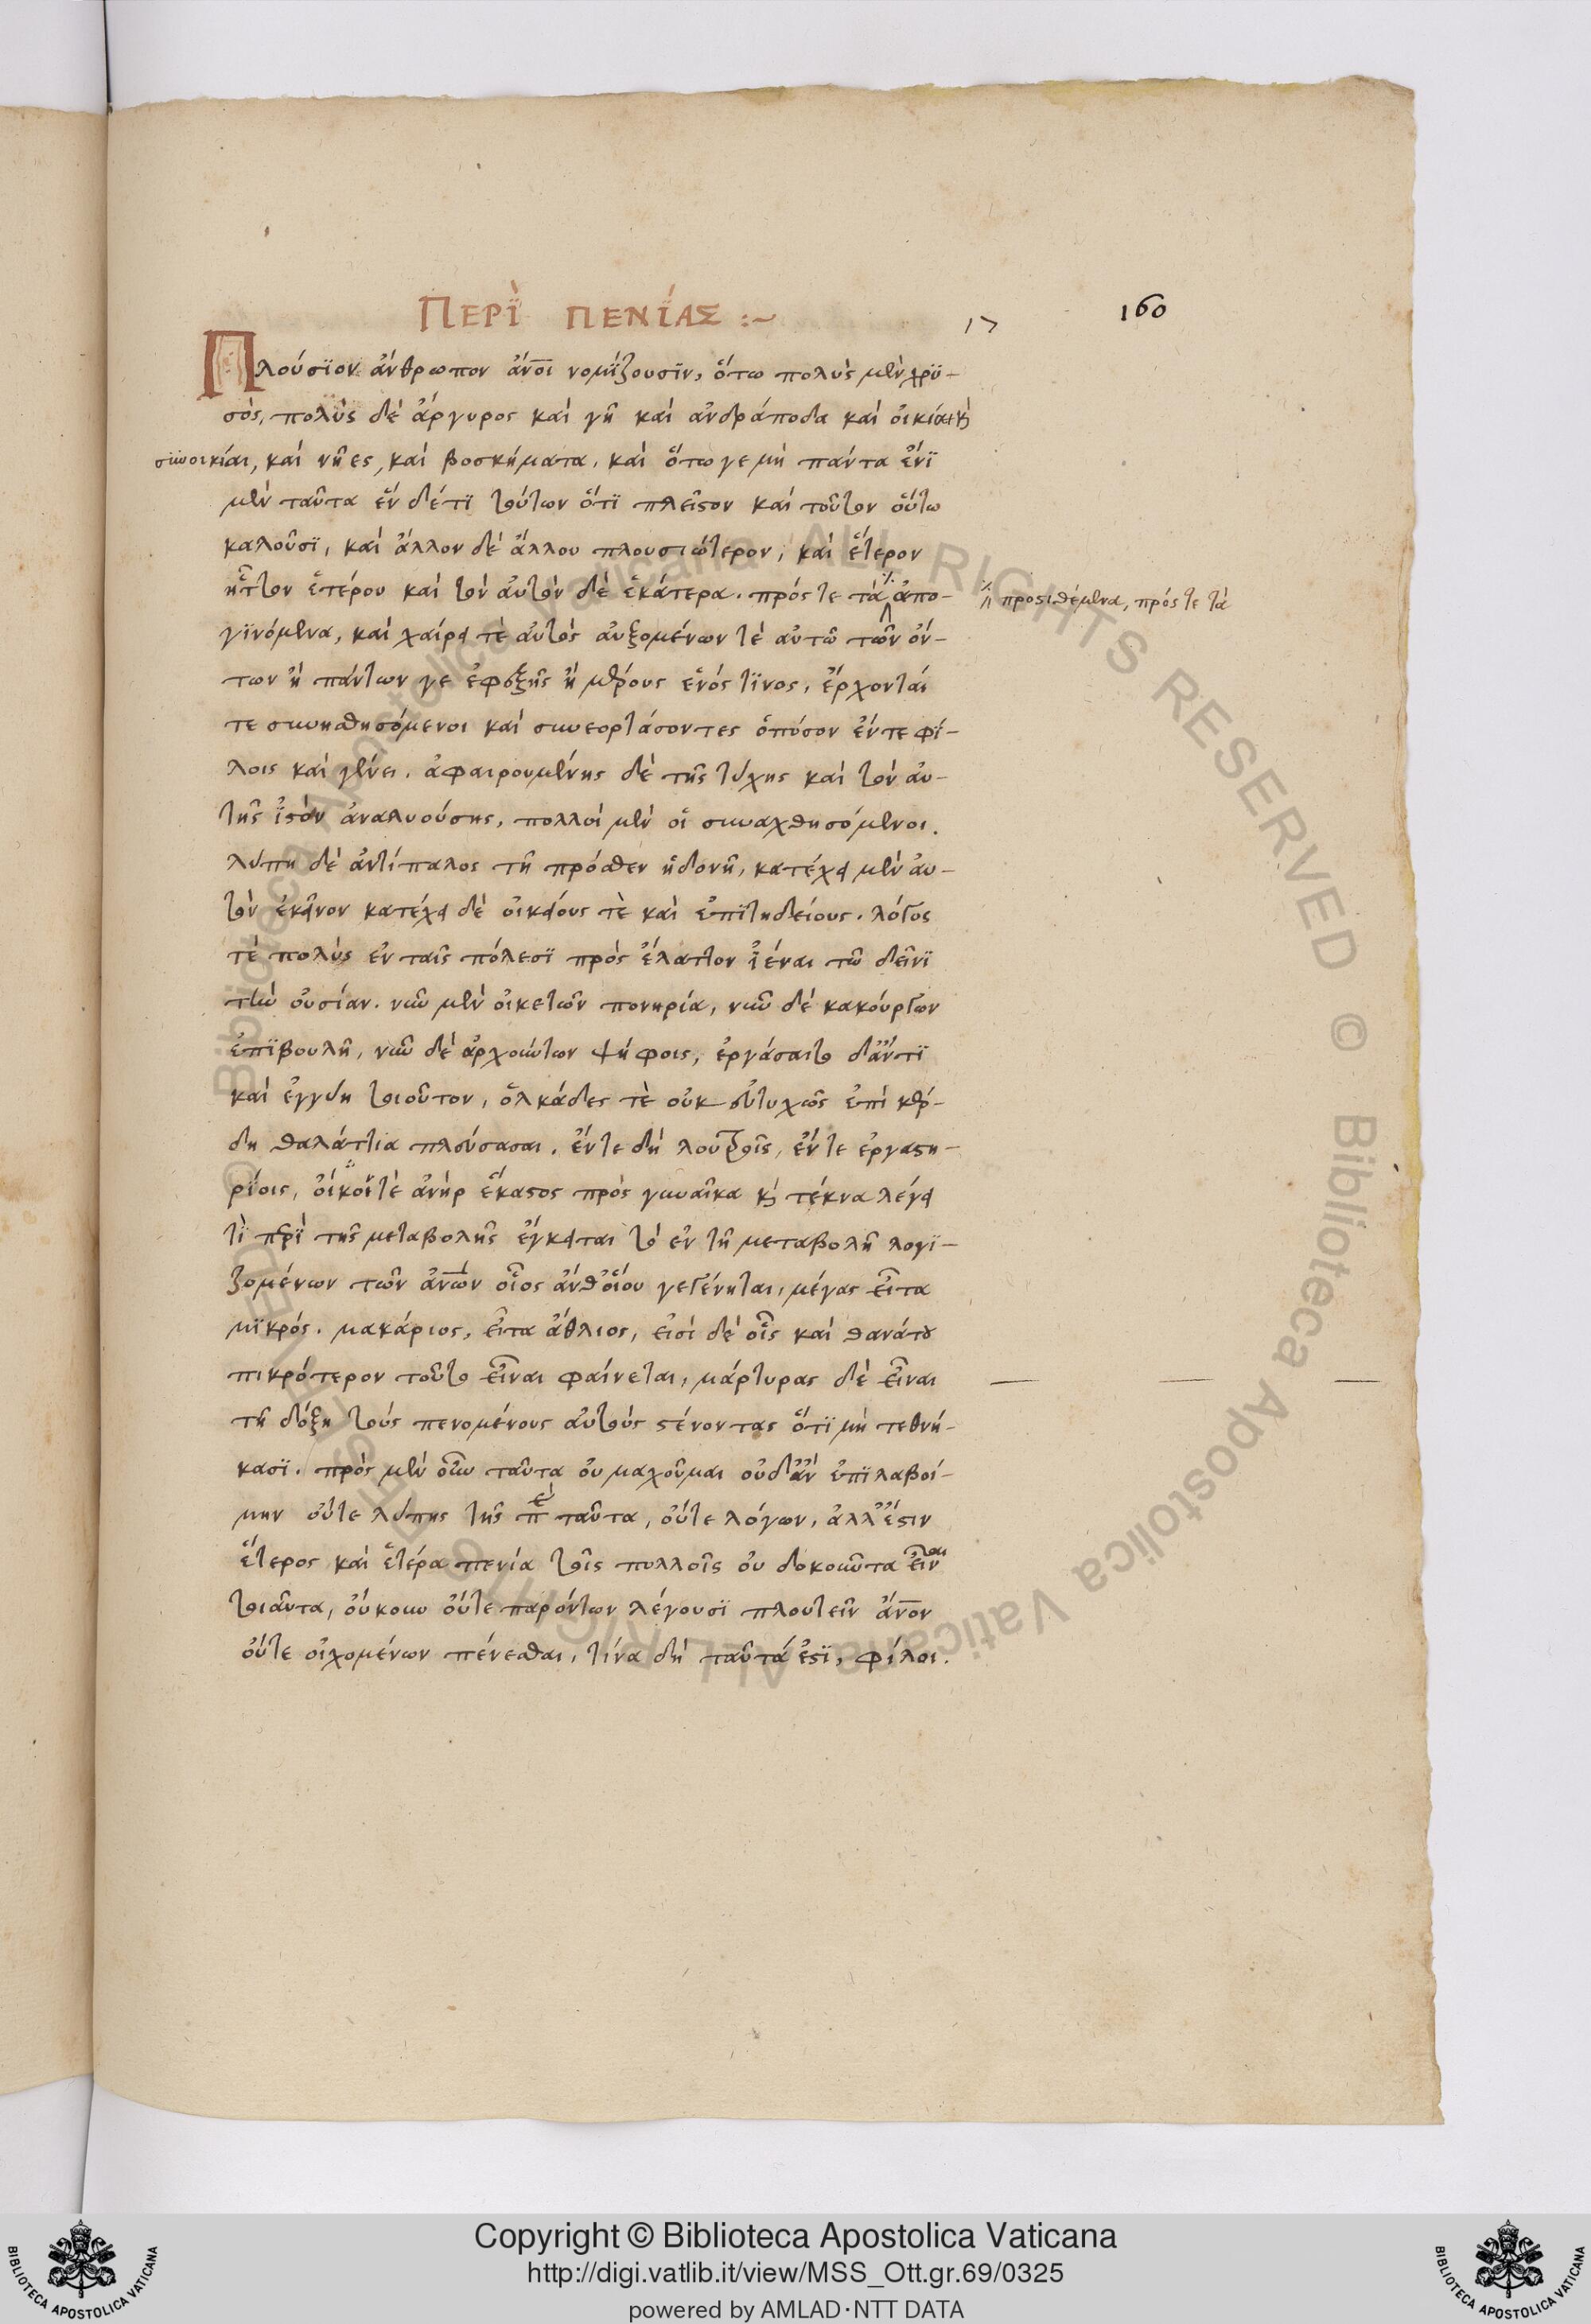 Περὶ πενίας :~
17
160
Πλούσϊον ἄνθρωπον ἄνοι νομίζουσϊν, ὅτω πολὺς μὲν χρυ-
σὸς, πολὺς δὲ ἄργυρος καὶ γῆ καὶ ἀνδράποδα καὶ οἰκίαι κὶ
συνοικίαι, καὶ νῆες, καὶ βοσκήματα. καὶ ὅτω γε μὴ πάντα ἔνϊ
μὲν ταῦτα ἓν δέ τϊ τούτων ὅτϊ πλεῖστον καὶ τοῦτον οὕτω
καλοῦσϊ, καὶ ἄλλον δὲ ἄλλου πλουσιώτερον, καὶ ἕτερον
ἧττον ἑτέρου καὶ τὸν αὐτὸν δὲ ἑκάτερα. πρός τε τὰ ἀπο-
προστιθέμενα, πρός τε τὰ
γϊνόμενα, καὶ χαίρει τὲ αὐτὸς αὐξομένων τὲ αὐτῶ τῶν ὄν-
των ἢ πάντων γε ἐφεξῆς ἢ μέρους ἑνός τϊνος, ἔρχονταί
τε συνησθησόμενοι καὶ συνεορτάσοντες ὁπόσον ἔν τε φί-
λοις καὶ γένει. ἀφαιρουμένης δὲ τῆς τύχης καὶ τὸν αὐ-
τῆς ἱστὸν ἀναλυούσης, πολλοὶ μὲν οἱ συναχθησόμενοι.
λύπη δὲ ἀντίπαλος τῆ πρόσθεν ἡδονῆ, κατέχει μὲν αὐ-
τὸν ἐκεῖνον κατέχει δὲ οἰκείους τὲ καὶ ἐπϊτηδείους. λόγος
τὲ πολὺς ἐν ταῖς πόλεσϊ πρὸς ἔλαττον ἰέναι τῶ δεῖνϊ
τὴν οὐσίαν. νῦν μὲν οἰκετῶν πονηρία, νῦν δὲ κακούργων
ἐπϊβουλῆ, νῦν δὲ ἀρχόντων ψήφοις, ἐργάσαιτο δ' ἄν τϊ
καὶ ἐγγύη τοιοῦτον, ὁλκάδες τὲ οὐκ εὐτυχῶς ἐπὶ κέρ-
δη θαλάττια πλεύσασαι. ἔν τε δὴ λουτροῖς, ἔν τε ἐργαστη-
ρίοις, οἴκοϊ τὲ ἀνὴρ ἕκαστος πρὸς γυναῖκα κὶ τέκνα λέγει
τὶ περὶ τῆς μεταβολῆς ἔγκειται τὸ ἐν τῆ μεταβολῆ λογϊ-
ζομένων τῶν ἀνων οἷος ἀνθ' οἵου γεγένηται, μέγας εἶτα
μϊκρός. μακάριος, εἶτα ἄθλιος, εἰσὶ δὲ οἷς καὶ θανάτου
πικρότερον τοῦτο εἶναι φαίνεται, μάρτυρας δὲ εἶναι
τῆ δόξη τοὺς πενομένους αὐτοὺς στένοντας ὅτϊ μὴ τεθνή-
κασϊ. πρὸς μὲν οὖν ταῦτα οὐ μαχοῦμαι οὐδ' ἂν ἐπϊλαβοί-
μην οὔτε λύπης τῆς ἐπὶ ταῦτα, οὔτε λόγων, ἀλλ' ἔστιν
ἕτερος καὶ ἑτέρα πενία τοῖς πολλοῖς οὐ δοκοῦντα εἶναι
τοιαῦτα, οὔκουν οὔτε παρόντων λέγουσϊ πλουτεῖν ἄνον
οὔτε οἰχομένων πένεσθαι, τίνα δὴ ταῦτά ἐστϊ, φίλοι.
Copyright © Biblioteca Apostolica Vaticana
http://digi.vatlib.it/view/MSS_Ott.gr.69/0325
powered by AMLAD·NTT DATA